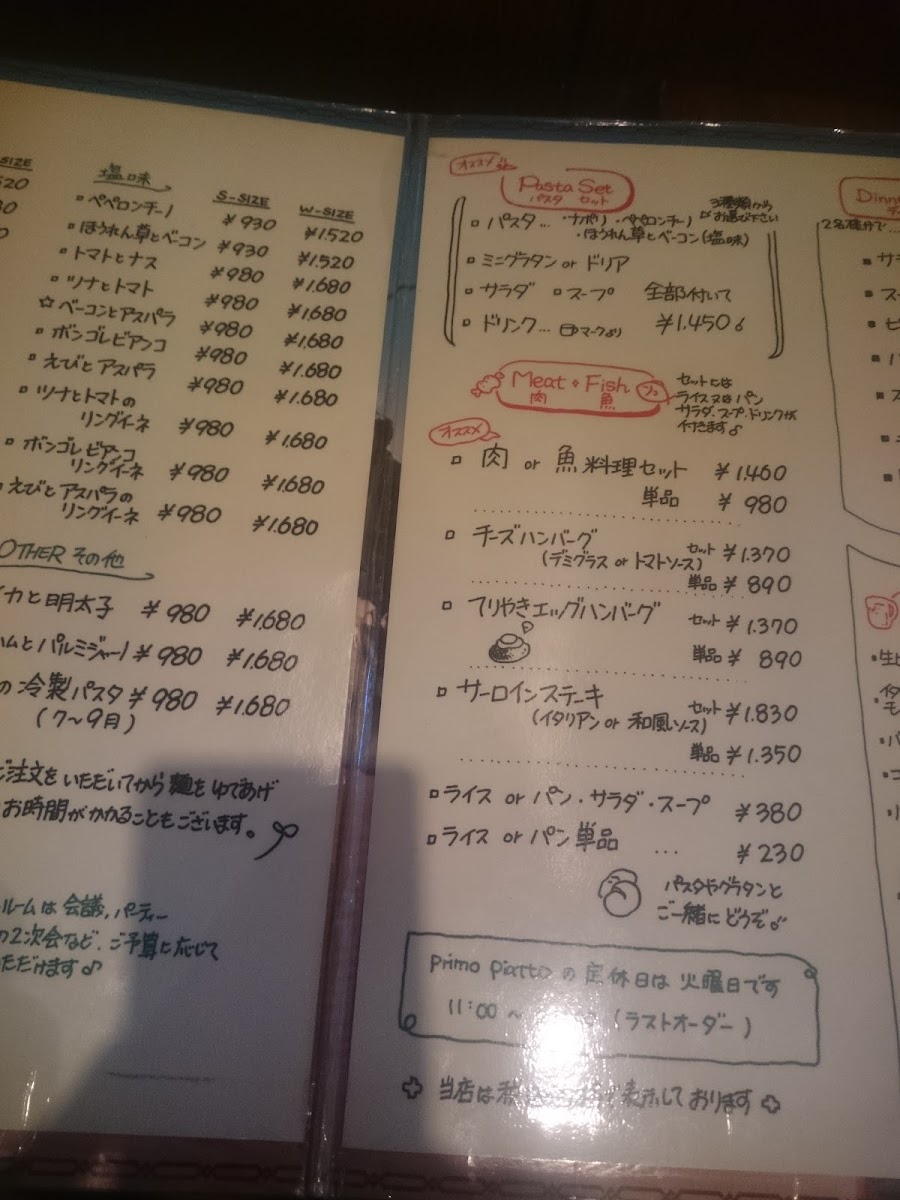 SIZE
520
塩味
S-SIZE
W-SIZE
ペペロンチーノ ¥930 ¥1.520
ほうれん草とベーコン ¥930 ¥1.520
トマトとナス ¥980 ¥1.680
ツナとトマト ¥980 ¥1.680
☆ ベーコンとアスパラ ¥980 ¥1.680
ボンゴレビアンコ ¥980 ¥1.680
えびとアスパラ ¥980 ¥1.680
ツナとトマトの
リングイーネ ¥980 ¥1.680
ボンゴレビアンコ
リングイーネ ¥980 ¥1.680
えびとアスパラの
リングイーネ ¥980 ¥1.680
OTHER その他
イカと明太子 ¥980 ¥1.680
ハムとパルミジャーノ ¥980 ¥1.680
の冷製パスタ ¥980 ¥1.680
(7〜9月)
ご注文をいただいてから麺をゆであげ
お時間がかかることもございます。
ルームは会議、パーティー
の2次会など、ご予算に応じて
ただけます♪
オススメ
Pasta Set
パスタ セット
3種類から
お選び下さい
パスタ… ・ナポリ・ペペロンチーノ
・ほうれん草とベーコン(塩味)
ミニグラタン or ドリア
サラダ スープ 全部付いて
ドリンク… マークより ¥1.450
Meat・Fish
肉 魚
セットには
ライス又はパン
サラダ・スープ・ドリンクが
付きます♪
オススメ
肉 or 魚料理セット ¥1.460
単品 ¥980
チーズハンバーグ
(デミグラス or トマトソース) セット ¥1.370
単品 ¥890
てりやきエッグハンバーグ セット ¥1.370
単品 ¥890
サーロインステーキ
(イタリアン or 和風ソース) セット ¥1.830
単品 ¥1.350
ライス or パン・サラダ・スープ ¥380
ライス or パン単品 … ¥230
パスタやグラタンと
ご一緒にどうぞ♪
Primo piatto の定休日は火曜日です
11:00 〜 (ラストオーダー)
当店は 表示しております
Dinn
2名様分で…